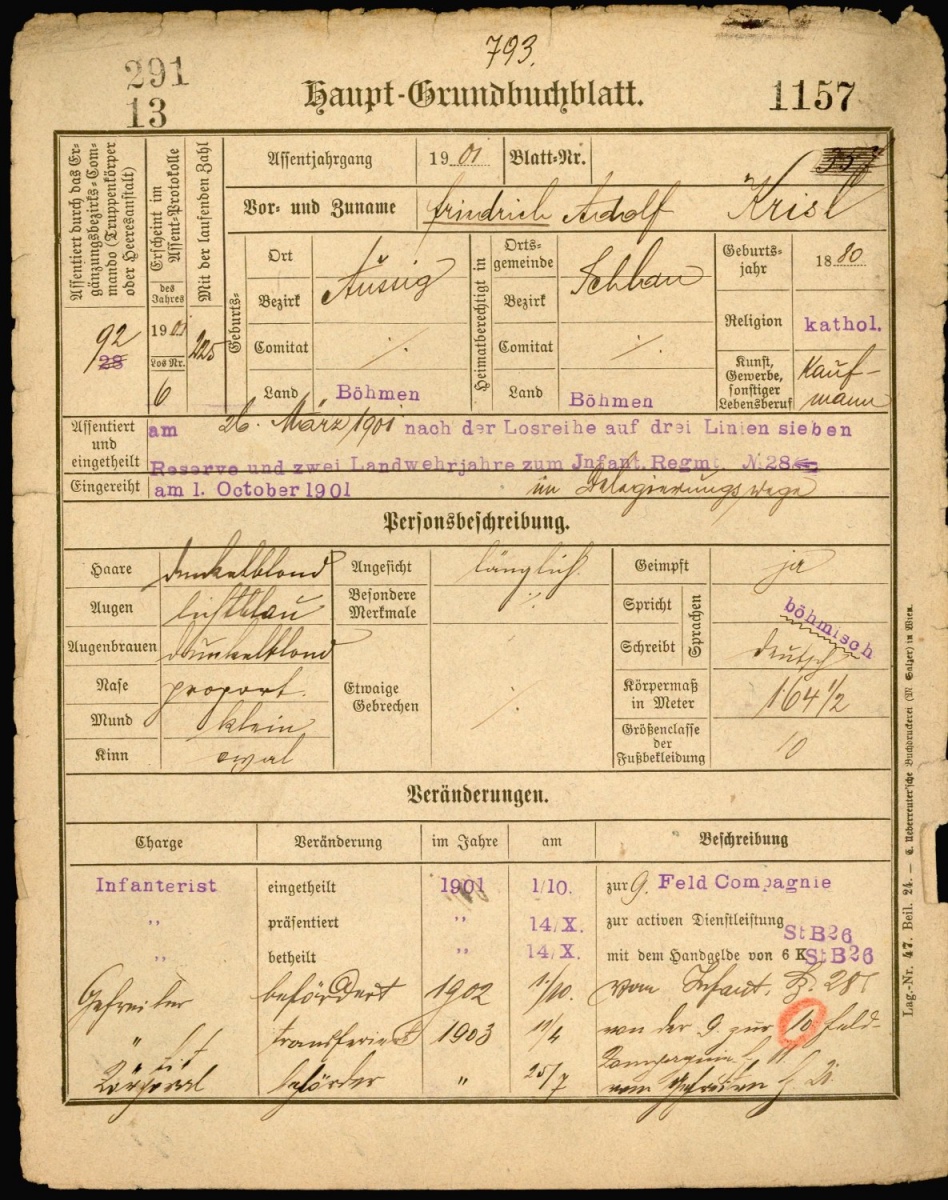 793.
291
13
Haupt-Grundbuchblatt.
1157
Assentiert durch das Ergänzungsbezirks-Commando (Truppenkörper oder Heeresanstalt)
92
28
Erscheint im Assent-Protokolle
des Jahres
1901
Los Nr.
6
Mit der laufenden Zahl
225
Assentjahrgang 1901 Blatt-Nr. 357
Vor- und Zuname Friedrich Adolf Krisl
Geburts-
Ort Aussig
Bezirk
Comitat ·/.
Land Böhmen
Heimatberechtigt in
Ortsgemeinde
Bezirk
Comitat ·/.
Land Böhmen
Geburtsjahr 1880
Religion kathol.
Kunst, Gewerbe, sonstiger Lebensberuf Kaufmann
Assentiert und eingetheilt
am 26. März 1901 nach der Losreihe auf drei Linien sieben
Reserve und zwei Landwehrjahre zum Jnfant. Regmt. N. 28
Eingereiht am 1. October 1901 im Delegierungswege
Personsbeschreibung.
Haare dunkelblond
Augen lichtblau
Augenbrauen dunkelblond
Nase proport.
Mund klein
Kinn oval
Angesicht länglich.
Besondere Merkmale ·/.
Etwaige Gebrechen ·/.
Geimpft ja
Spricht
Schreibt
Sprachen
böhmisch
deutsch
Körpermaß in Meter 164 1/2
Größenclasse der Fußbekleidung 10
Veränderungen.
Charge Veränderung im Jahre am Beschreibung
Infanterist eingetheilt 1901 1/10. zur 9. Feld Compagnie
" präsentiert " 14/X. zur activen Dienstleistung St B26
" betheilt " 14/X. mit dem Handgelde von 6 K St B26
Gefreiter befördert 1902 vom Infant.
" transferiert 1903 von der 9. zur 10. Feld-
befördert " 25/7
Lag.-Nr. 47. Beil. 24. — C. Ueberreuter'sche Buchdruckerei (M. Salzer) in Wien.